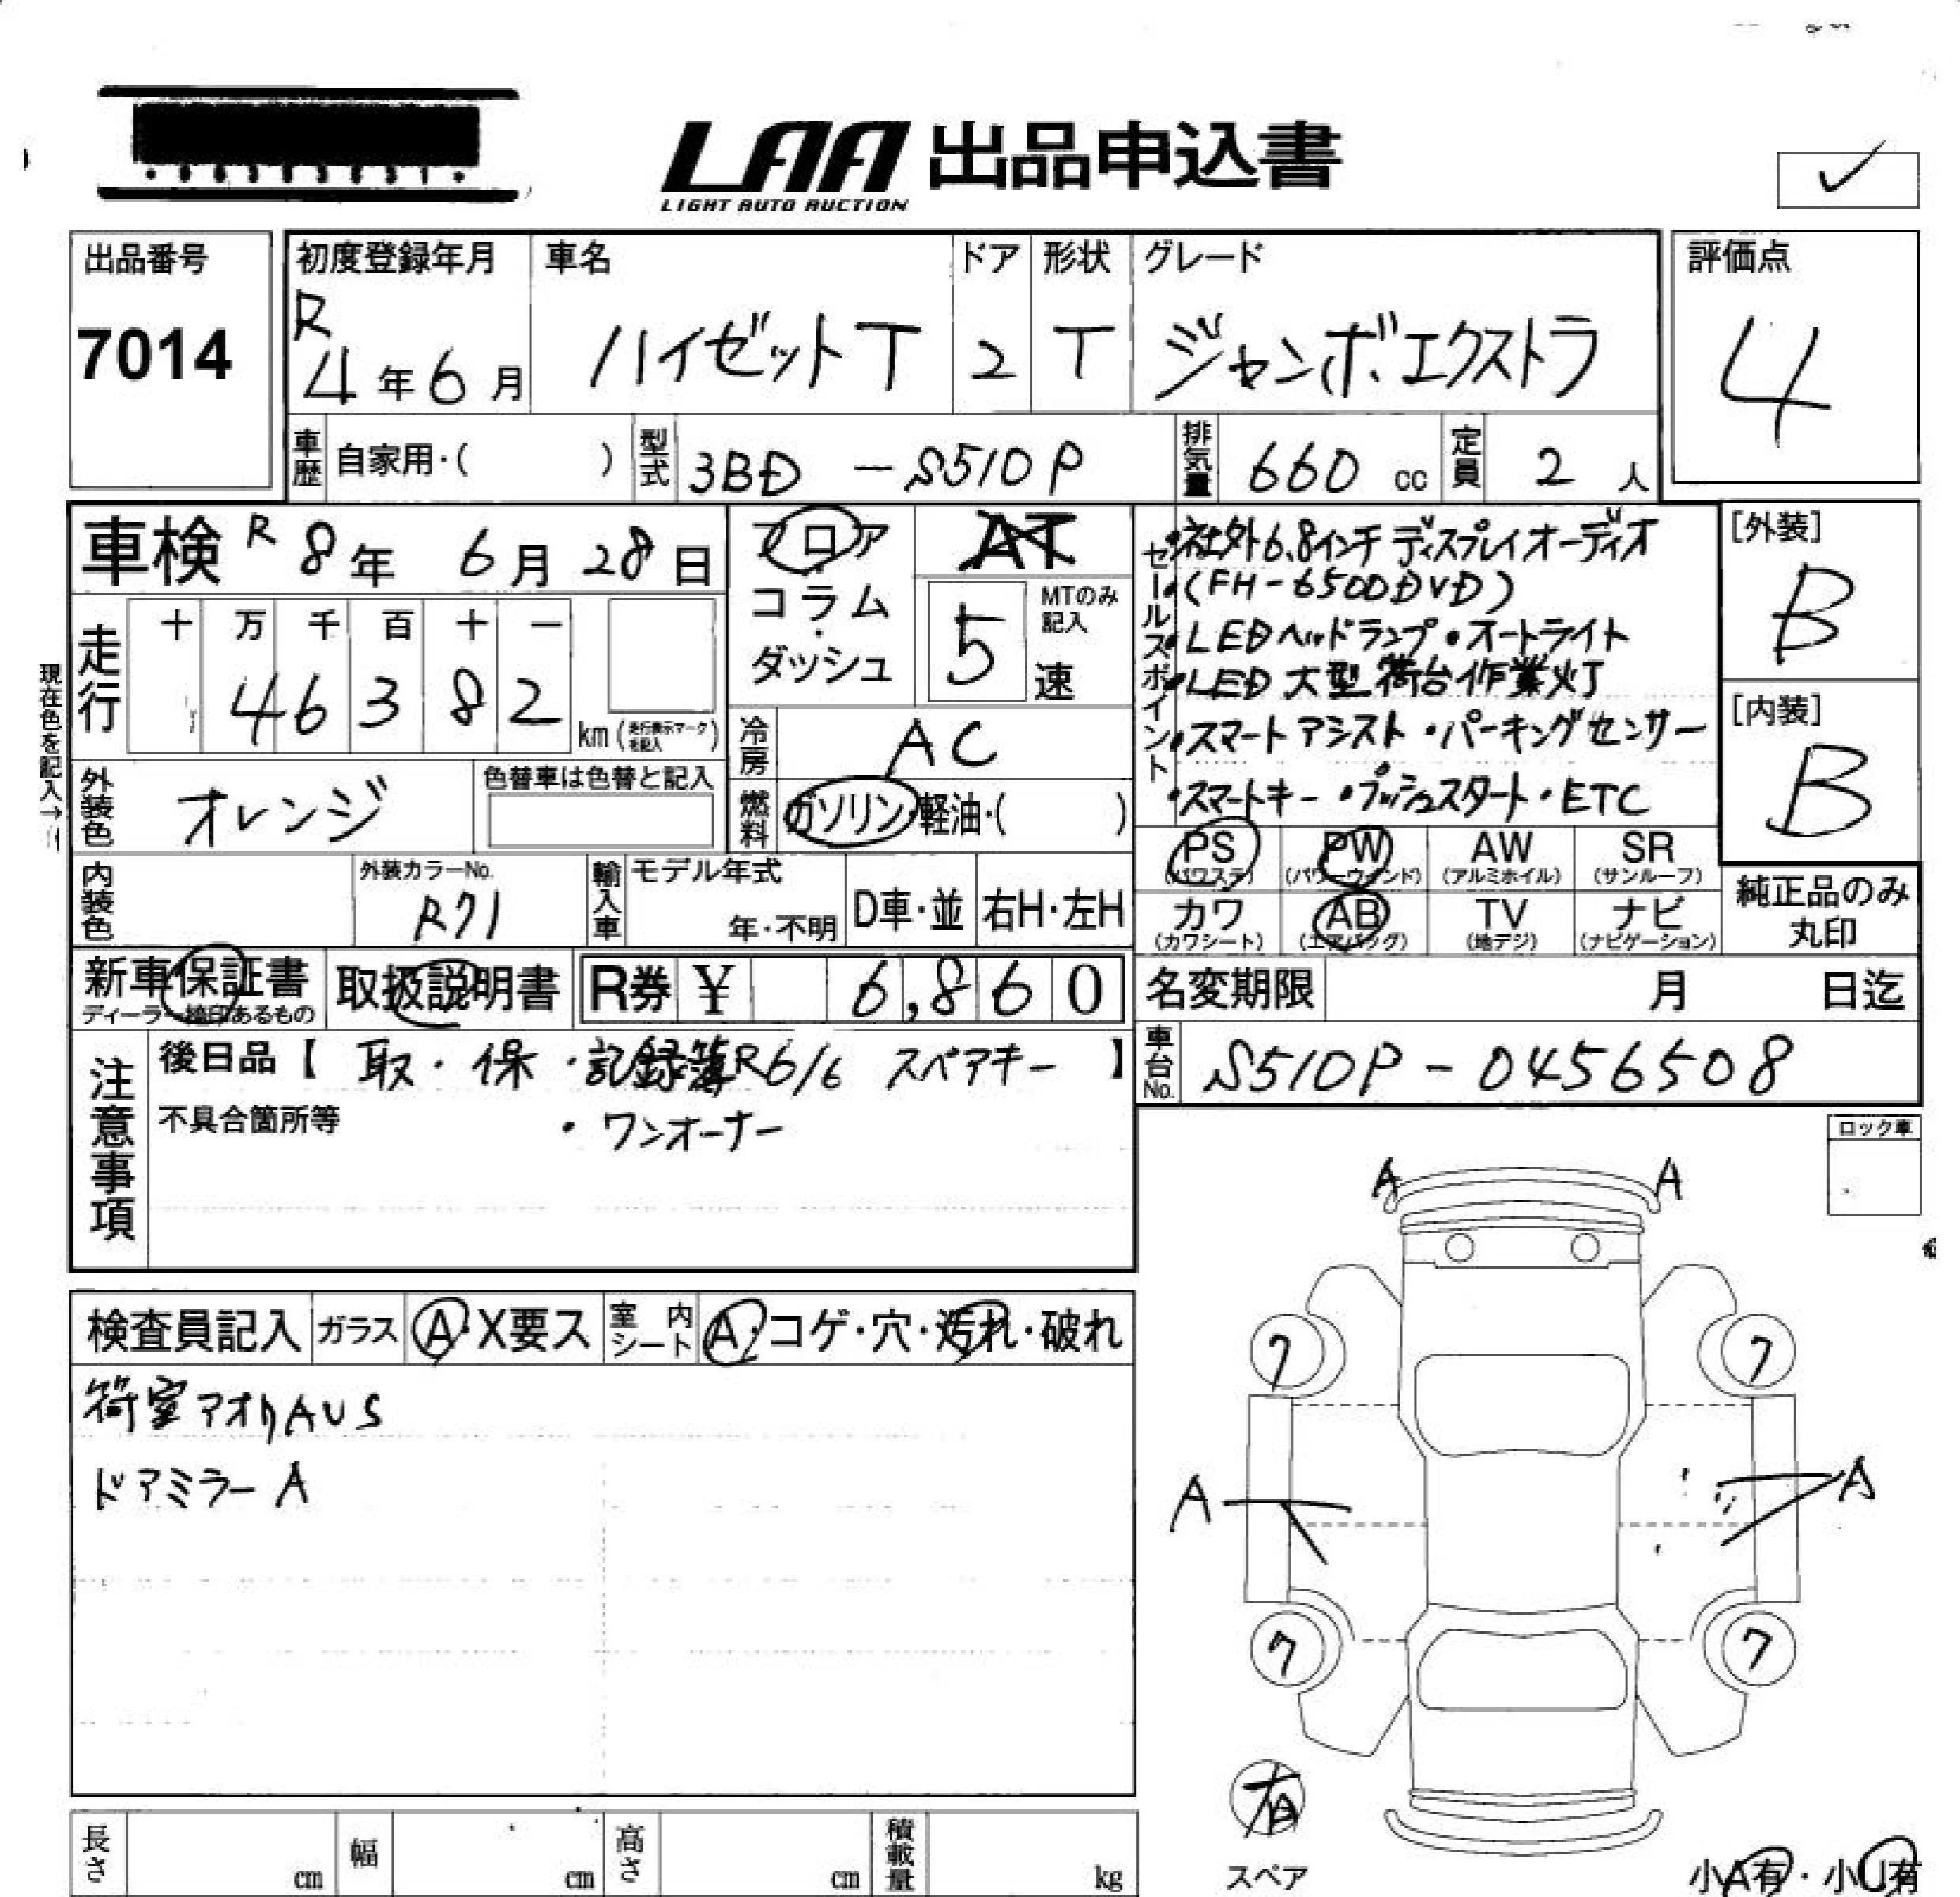 LAA 出品申込書
LIGHT AUTO AUCTION
✓
出品番号
7014
初度登録年月
R
4年6月
車名
ハイゼットT
ドア
2
形状
T
グレード
ジャンボエクストラ
評価点
4
車歴 自家用・( )
型式 3BD -S510P
排気量 660 cc
定員 2 人
車検 R 8年 6月 28日
走行
十 万 千 百 十 一
4 6 3 8 2
km (走行表示マークを記入)
現在色を記入→
フロア
・
コラム
・
ダッシュ
AT
5
MTのみ記入
速
冷房 AC
燃料 ガソリン・軽油・( )
外装色 オレンジ
色替車は色替と記入
内装色
外装カラーNo.
R71
輸入車
モデル年式
年・不明
D車・並
右H・左H
セールスポイント
・社外6.8インチ ディスプレイオーディオ
・(FH-6500DVD)
・LEDヘッドランプ・オートライト
・LED大型荷台作業灯
・スマートアシスト・パーキングセンサー
・スマートキー・プッシュスタート・ETC
[外装]
B
[内装]
B
PS
(パワステ)
PW
(パワーウインド)
AW
(アルミホイル)
SR
(サンルーフ)
カワ
(カワシート)
AB
(エアバッグ)
TV
(地デジ)
ナビ
(ナビゲーション)
純正品のみ
丸印
新車保証書
ディーラー捺印あるもの
取扱説明書
R券 ¥ 6,860
名変期限 月 日迄
車台No. S510P-0456508
注意事項
後日品【 取・保・記録簿R6/6 スペアキー 】
不具合箇所等 ・ワンオーナー
ロック車
検査員記入
ガラス A・X要ス
室内シート A・コゲ・穴・汚れ・破れ
荷室アオリAUS
ドアミラーA
A A
ワ ワ
A A
ワ ワ
有
スペア
小A有・小U有
長さ cm
幅 cm
高さ cm
積載量 kg